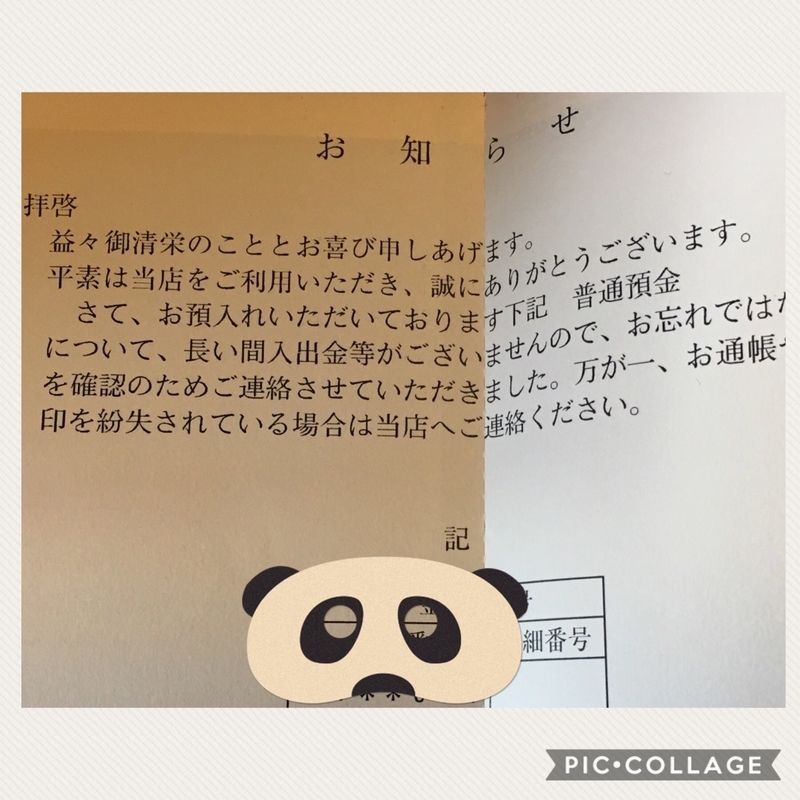 お知らせ
拝啓
益々御清栄のこととお喜び申しあげます。
平素は当店をご利用いただき、誠にありがとうございます。
さて、お預入れいただいております下記 普通預金
について、長い間入出金等がございませんので、お忘れでは
を確認のためご連絡させていただきました。万が一、お通帳
印を紛失されている場合は当店へご連絡ください。
記
細番号
PIC•COLLAGE